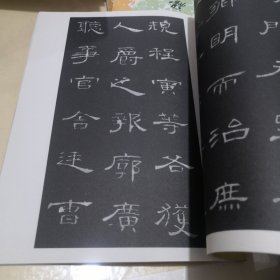 鄉明而治庶
規程寅等各獲
人爵之報廓廣
聽事官舍廷曹